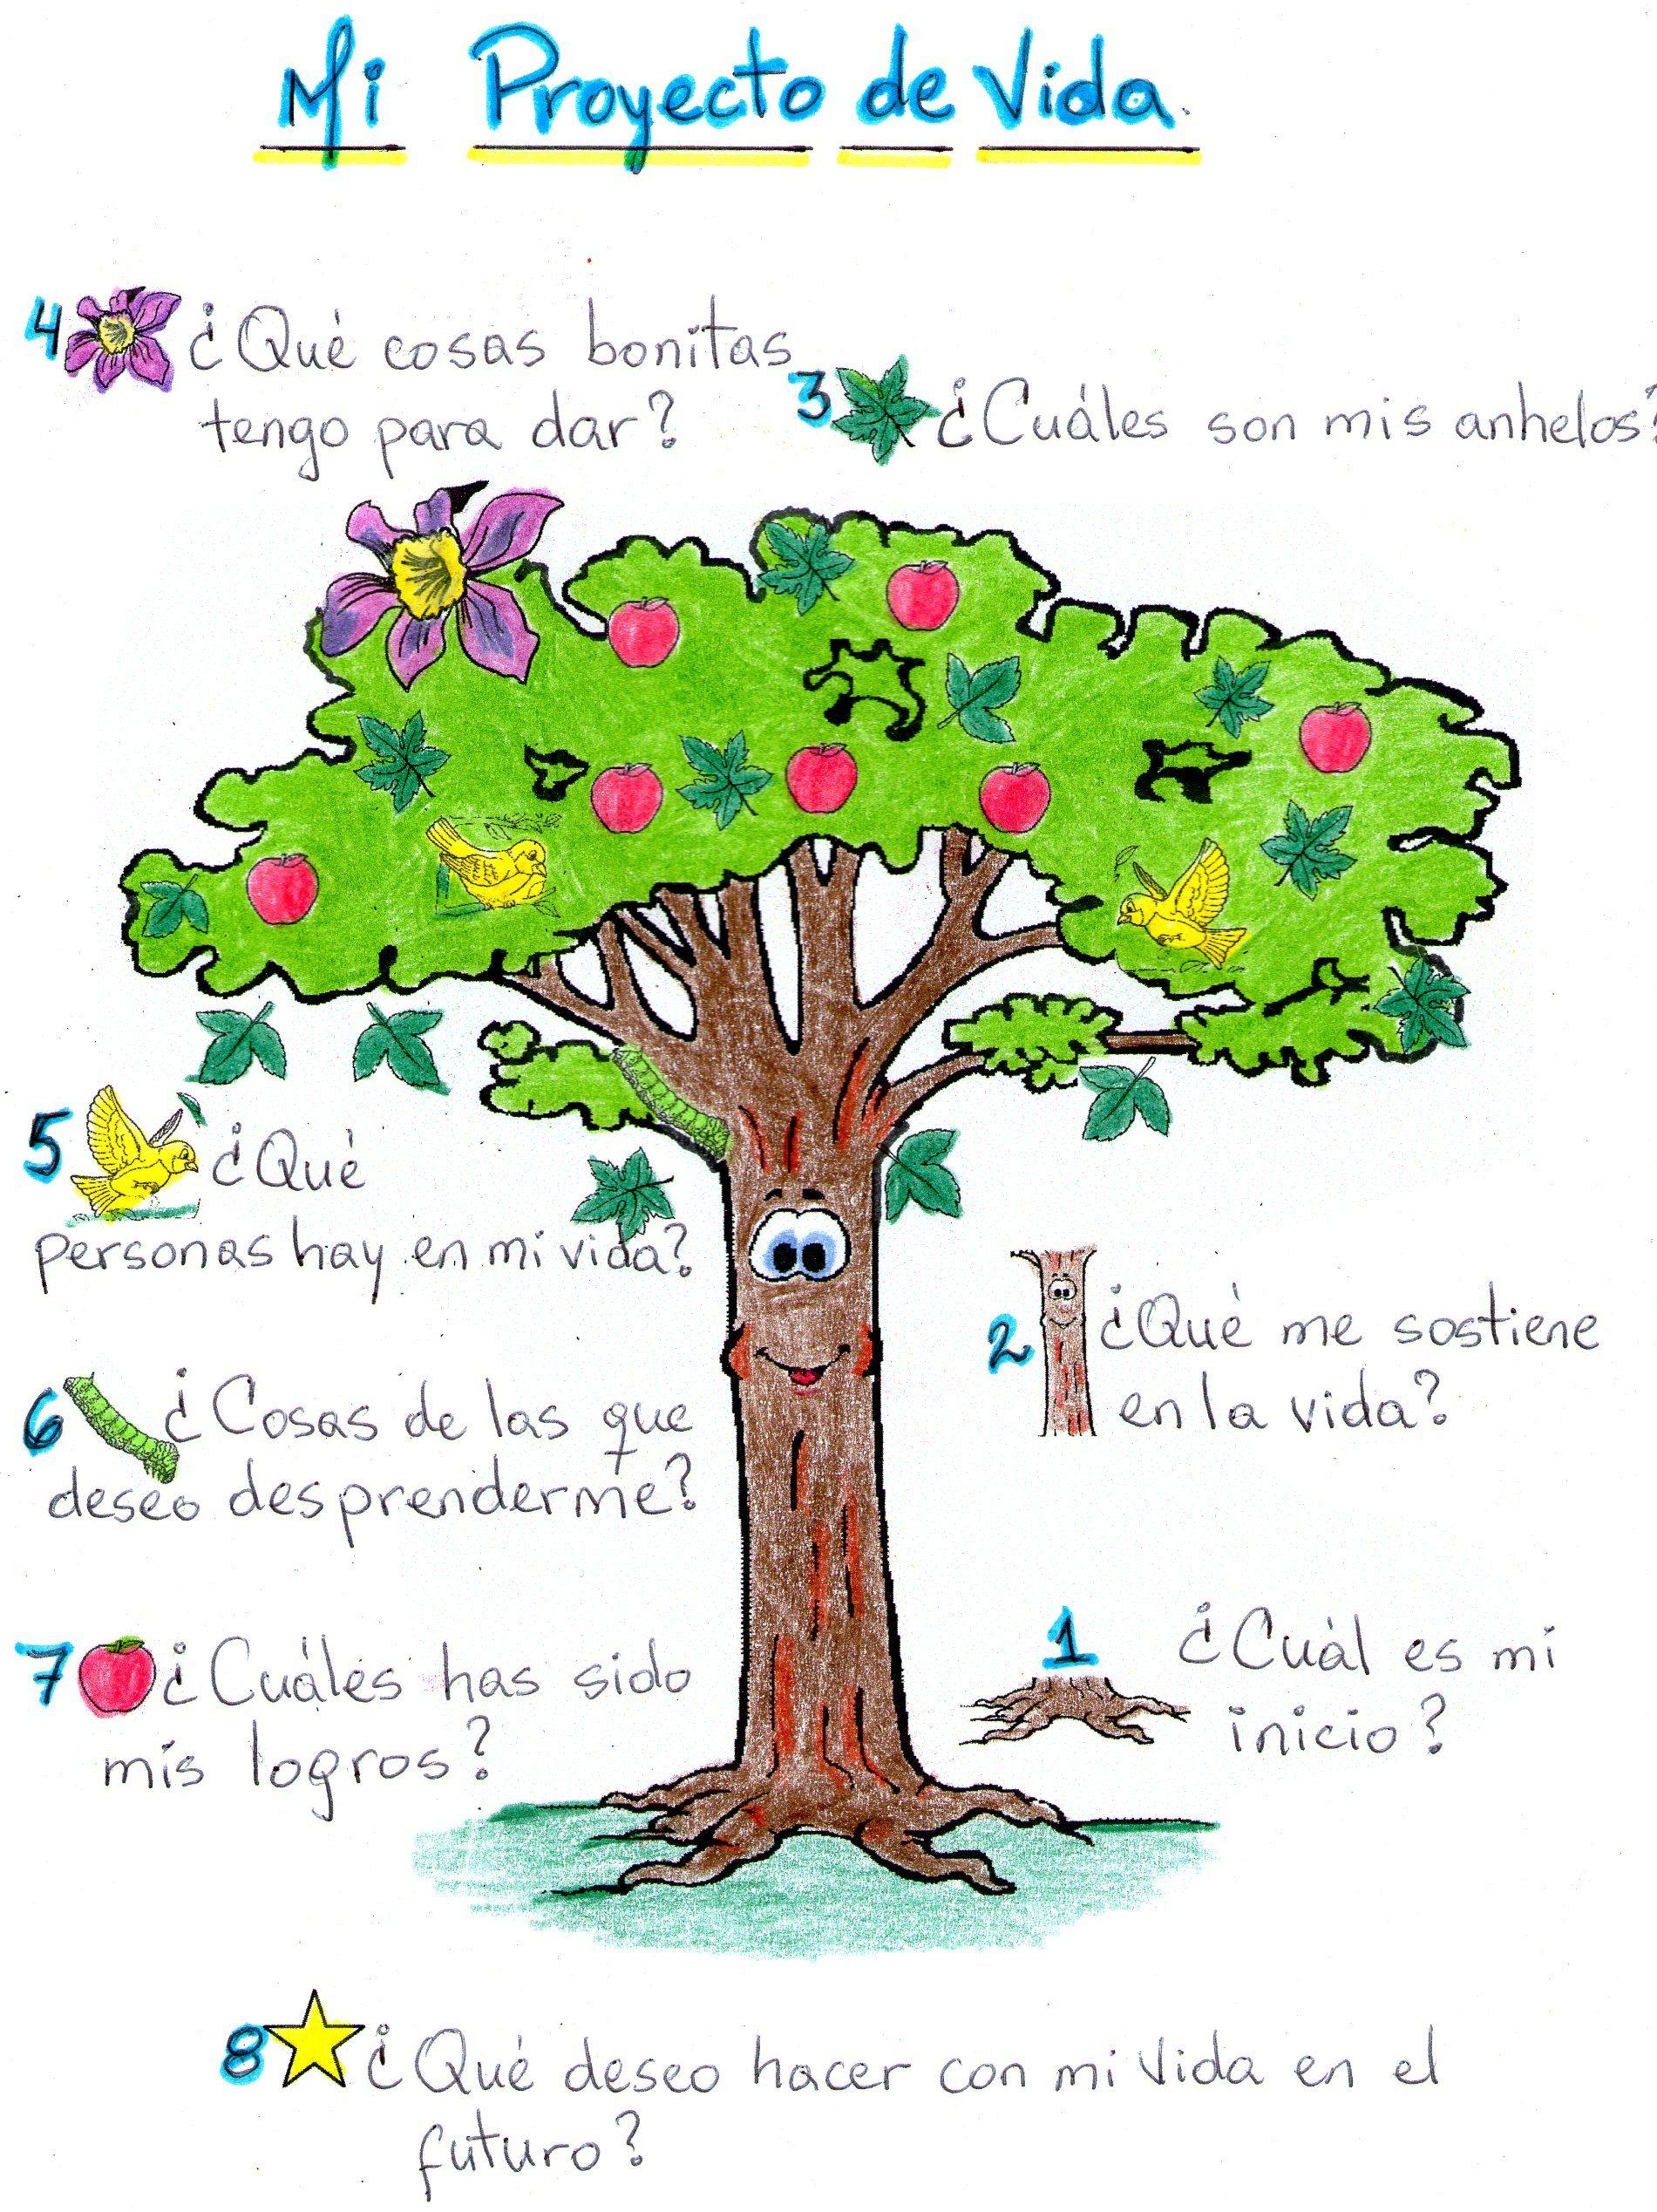 Mi Proyecto de Vida.
4 ¿Qué cosas bonitas
tengo para dar?
3 ¿Cuáles son mis anhelos?
5 ¿Qué
personas hay en mi vida?
2 ¿Qué me sostiene
en la vida?
6 ¿Cosas de las que
deseo desprenderme?
7 ¿Cuáles has sido
mis logros?
1 ¿Cuál es mi
inicio?
8 ¿Qué deseo hacer con mi vida en el
futuro?